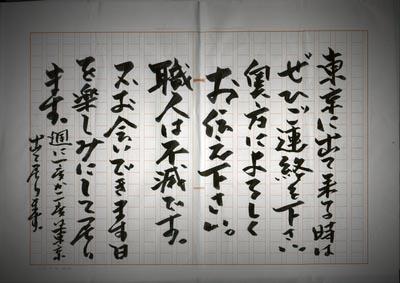 東京に出て来る時は
ぜひご連絡を下さい
奥方によろしく
お伝え下さい。
職人は不滅です。
又お会いできます日
を楽しみにして居り
ます。週に一度か二度は東京
出て居ります。